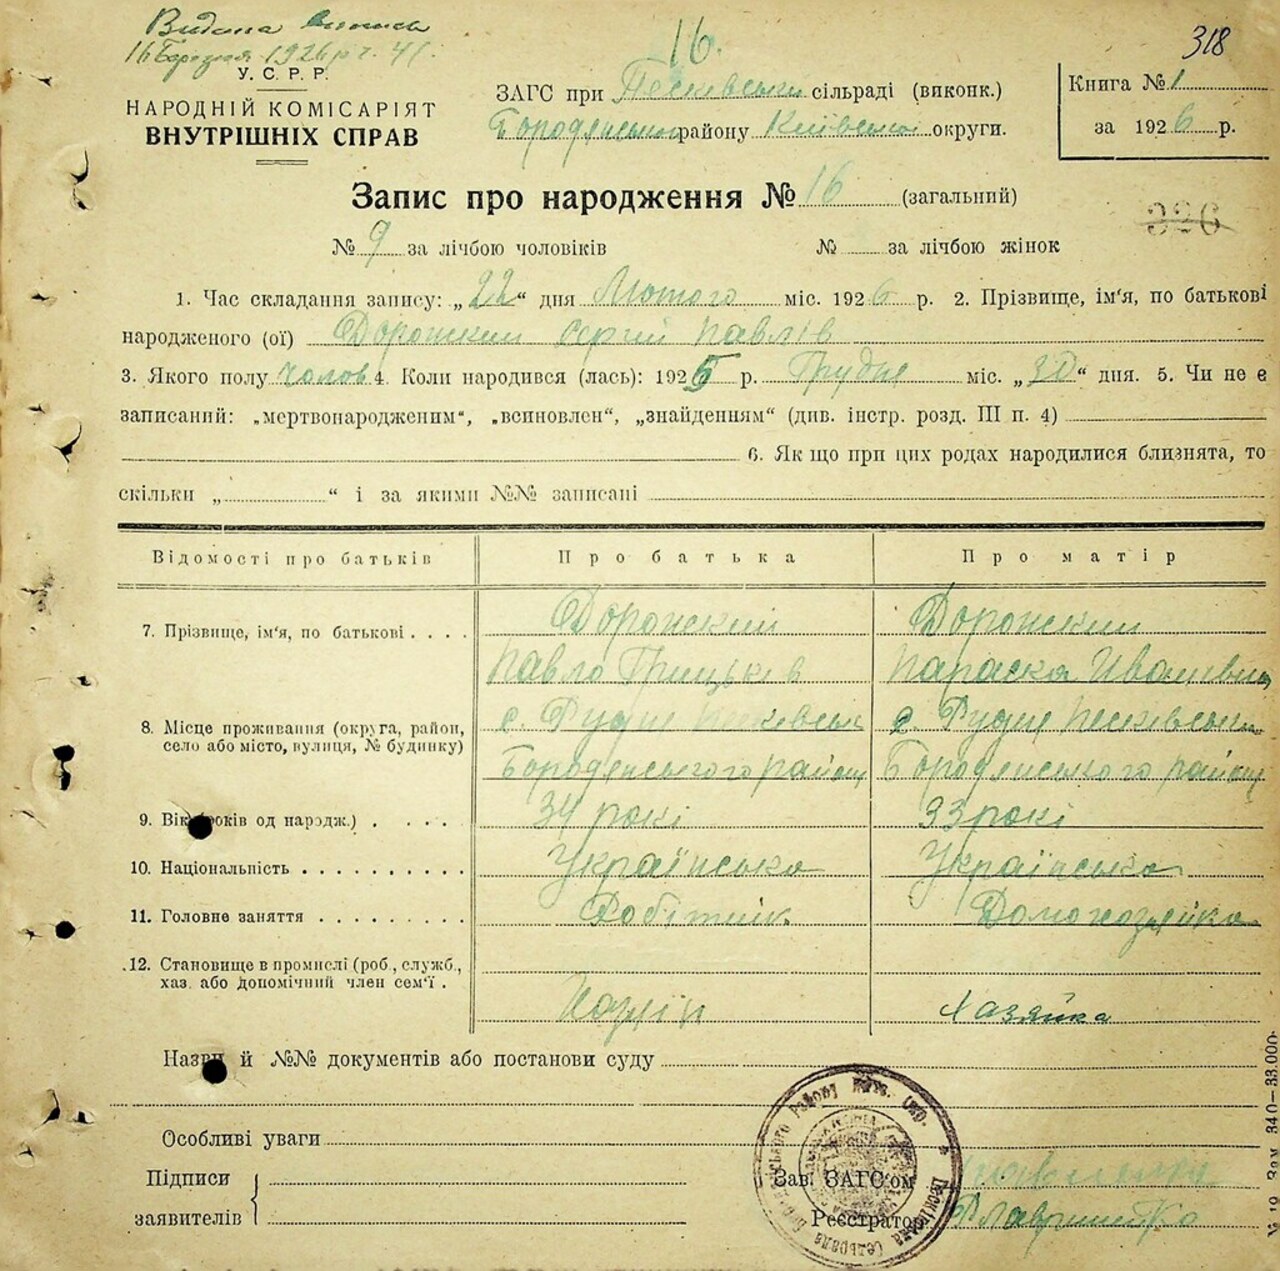 Видана виписъ
16 Березня 1926 р. ч. 41.
16.
318
У. С. Р. Р.
НАРОДНІЙ КОМІСАРІЯТ
ВНУТРІШНІХ СПРАВ
ЗАГС при Песківськи сільраді (виконк.)
Бородянськи району Київськи округи.
Книга № 1
за 1926 р.
Запис про народження № 16 (загальний)
926
№ 9 за лічбою чоловіків № за лічбою жінок
1. Час складання запису: „22“ дня Лютого міс. 1926 р. 2. Прізвище, ім'я, по батькові
народженого (ої) Дорожкий Сергій Павлів
3. Якого полу чолов 4. Коли народився (лась): 1925 р. Грудня міс. „30“ дня. 5. Чи не є
записаний: „мертвонародженим“, „всиновлен“, „знайденням“ (див. інстр. розд. III п. 4)
6. Як що при цих родах народилися близнята, то
скільки „ “ і за якими №№ записані
Відомості про батьків Про батька Про матір
7. Прізвище, ім'я, по батькові . . . . Дорожский Дорожский
Павло Грицьків Параска Иванівна
8. Місце проживання (округа, район, с. Рудня Песківськ с. Рудня Песківськи
село або місто, вулиця, № будинку) Бородянського району Бородянського району
9. Вік (років од народж.) . . . . 34 рокі 33 рокі
10. Національність . . . . . . . . . . Українська Українська
11. Головне заняття . . . . . . . . . Робітник Домохозяйка
12. Становище в промислі (роб., служб.,
хаз. або допомічний член сем'ї . Хазяїн Хазяйка
Назви й №№ документів або постанови суду
Особливі уваги
Підписи
заявителів
Зав. ЗАГС'ом
Реєстратор Лавриненко
Зам. 340—33.000.